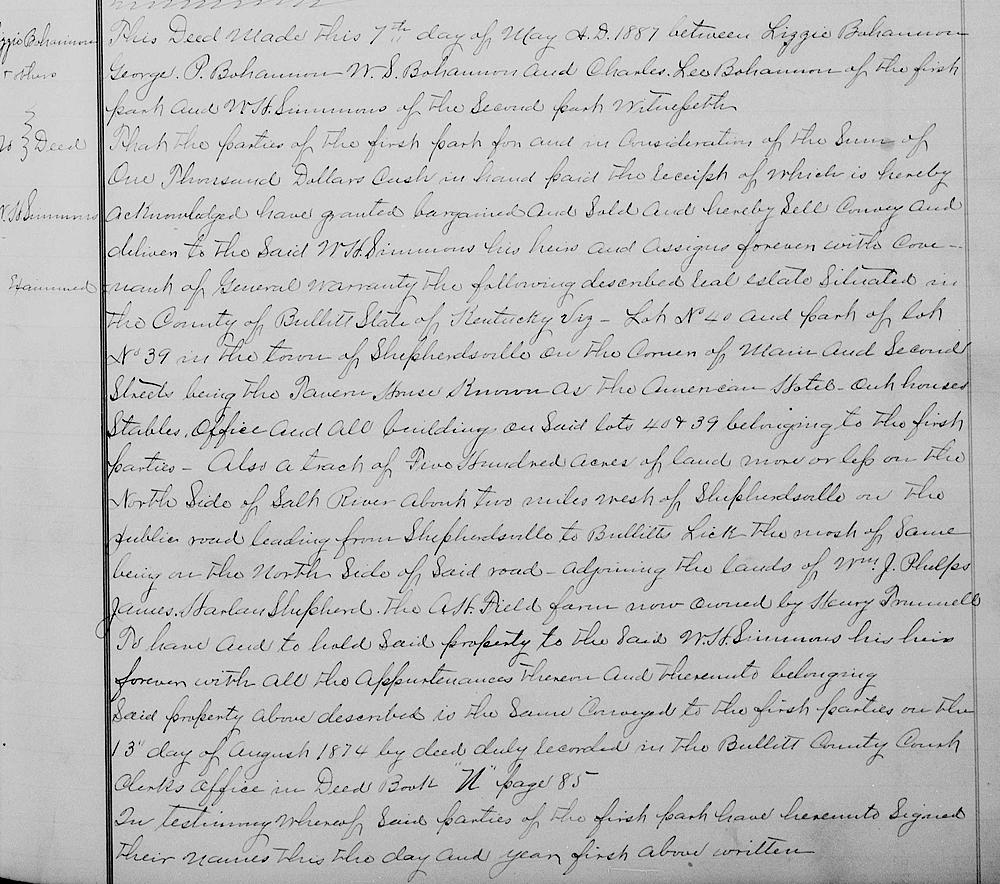 Lizzie Bohannon
& others
to } Deed
W.H. Simmons
Examined
This Deed Made this 7th day of May A.D. 1887 between Lizzie Bohannon
George. P. Bohannon W. S. Bohannon and Charles. Lee Bohannon of the first
part and W.H. Simmons of the Second part Witnesseth
That the parties of the first part for and in Consideration of the Sum of
One Thousand Dollars Cash in hand paid the receipt of which is hereby
acknowledged have granted bargained and Sold and hereby Sell Convey and
deliver to the Said W.H. Simmons his heirs and assigns forever with Cove-
nant of General Warranty the following described real estate Situated in
the County of Bullitt State of Kentucky Viz - Lot No 40 and part of lot
No 39 in the town of Shepherdsville on the Corner of Main and Second
Streets being the Tavern House Known as the American Hotel - out houses
Stables, Office and all buildings on Said lots 40 & 39 belonging to the first
parties - Also a tract of Five Hundred Acres of land more or less on the
North Side of Salt River about two miles west of Shepherdsville on the
public road leading from Shepherdsville to Bullitts Lick the most of Same
being on the North Side of Said road - adjoining the lands of Wm J. Phelps
James. Harlan Shepherd. the A.H. Field farm now owned by Henry Trunnell
To have and to hold Said property to the Said W.H. Simmons his heirs
forever with all the Appurtenances thereon and thereunto belonging
Said property above described is the Same Conveyed to the first parties on the
13" day of August 1874 by deed duly recorded in the Bullitt County Court
Clerks office in Deed Book "N" page 85
In testimony Whereof Said parties of the first part have hereunto Signed
their names this the day and year first above written